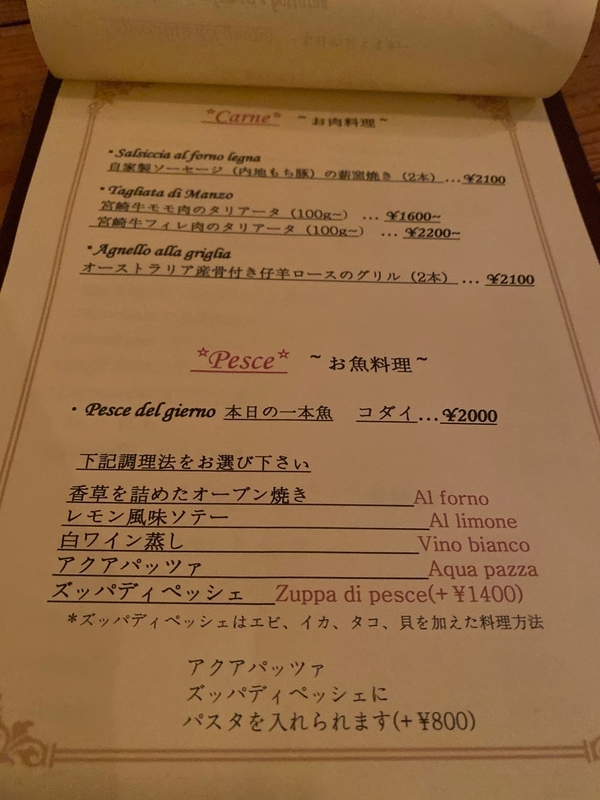 *Carne* ~お肉料理~
・Salsiccia al forno legna
自家製ソーセージ（内地もち豚）の薪窯焼き（2本）...¥2100
・Tagliata di Manzo
宮崎牛モモ肉のタリアータ（100g~） ... ¥1600~
宮崎牛フィレ肉のタリアータ（100g~） ... ¥2200~
・Agnello alla griglia
オーストラリア産骨付き仔羊ロースのグリル（2本） ... ¥2100
☆Pesce☆ ~お魚料理~
・Pesce del gierno 本日の一本魚 コダイ...¥2000
下記調理法をお選び下さい
香草を詰めたオーブン焼き Al forno
レモン風味ソテー Al limone
白ワイン蒸し Vino bianco
アクアパッツァ Aqua pazza
ズッパディペッシェ Zuppa di pesce(+¥1400)
*ズッパディペッシェはエビ、イカ、タコ、貝を加えた料理方法
アクアパッツァ
ズッパディペッシェに
パスタを入れられます(+¥800)